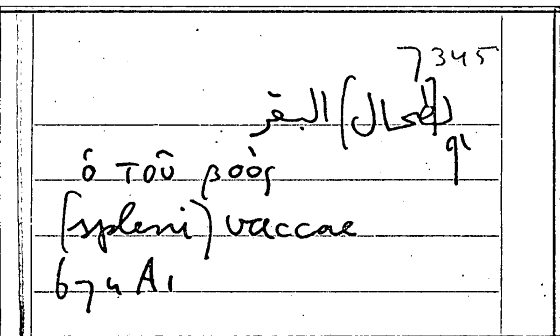 7345
(طحال) البقر
ὁ τοῦ βοὸς
(spleni) vaccae
674 A1